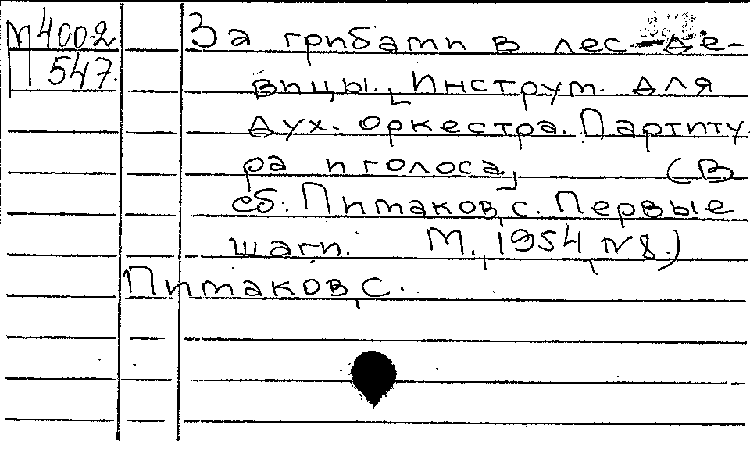 М 4002
547
За грибами в лес де-
вицы. [Инструм. для
дух. оркестра. Партиту
ра и голоса] (В
сб: Питаков, С. Первые
шаги. М., 1954, N 8.)
Питаков, С.